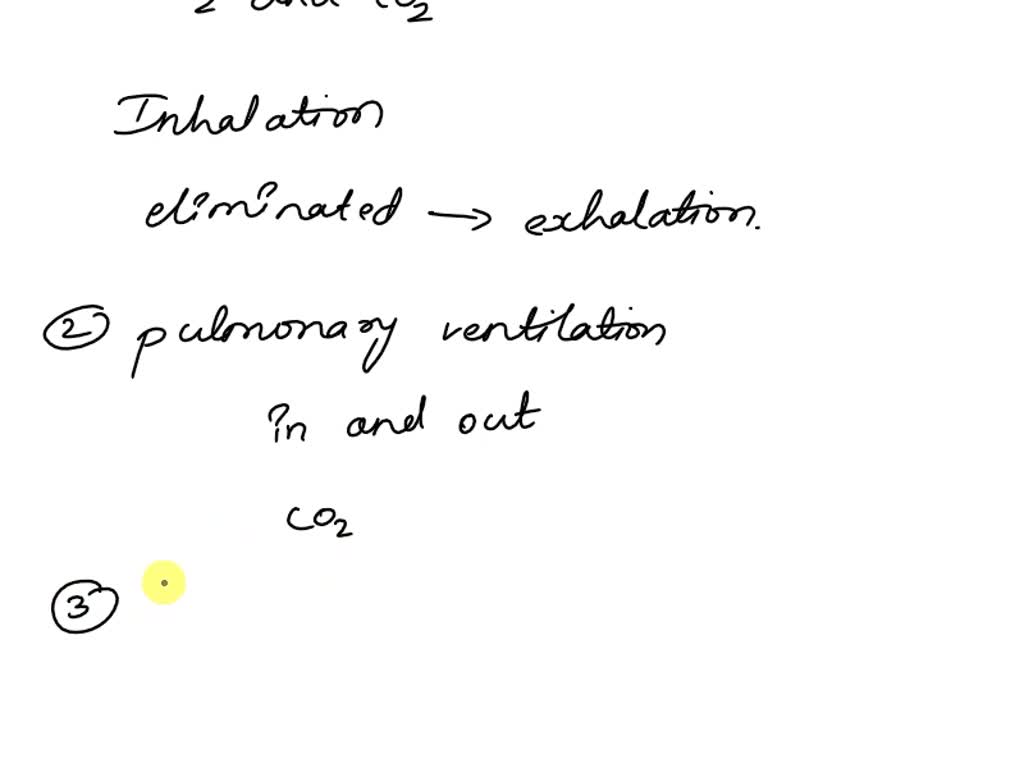 2 and CO2
Inhalation
eliminated → exhalation.
② pulmonary ventilation
in and out
CO2
③